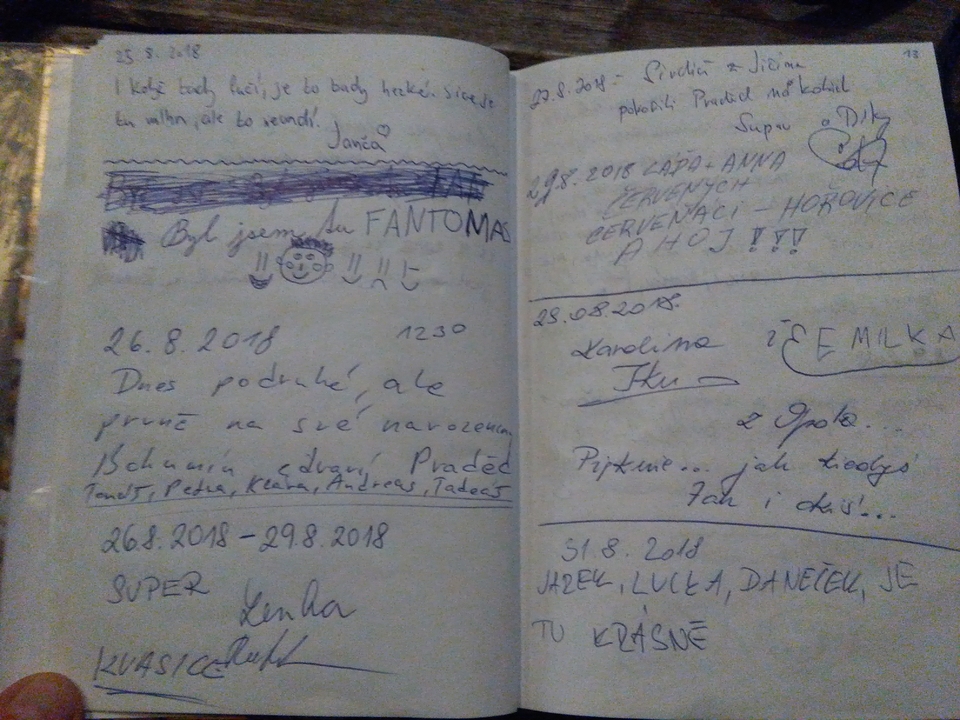 25.8.2018
I když tady fučí, je to tady hezké. Sice je
tu mlha, ale to nevadí!
Janča
Byl jsem tu FANTOMAS
26.8.2018 1230
Dnes podruhé, ale
prvně na své narozeniny
Bohumín zdraví Praděd
Tomáš, Petra, Klára, Andreas, Tadeáš
26.8.2018 – 29.8.2018
SUPER
Lenka
KVASICE
13
z Jičína
pokořili Praděd na kolech
Super
29.8.2018 LÁĎA + ANNA
ČERVENÝCH
ČERVEŇÁCI – HOŘOVICE
AHOJ !!!
29.08.2018.
Karolina
EMILKA
z Opola...
Pięknie... jak kiedyś
Tak i dziś!...
31.8.2018
JAREK, LUCKA, DANEČEK, JE
TU KRÁSNĚ